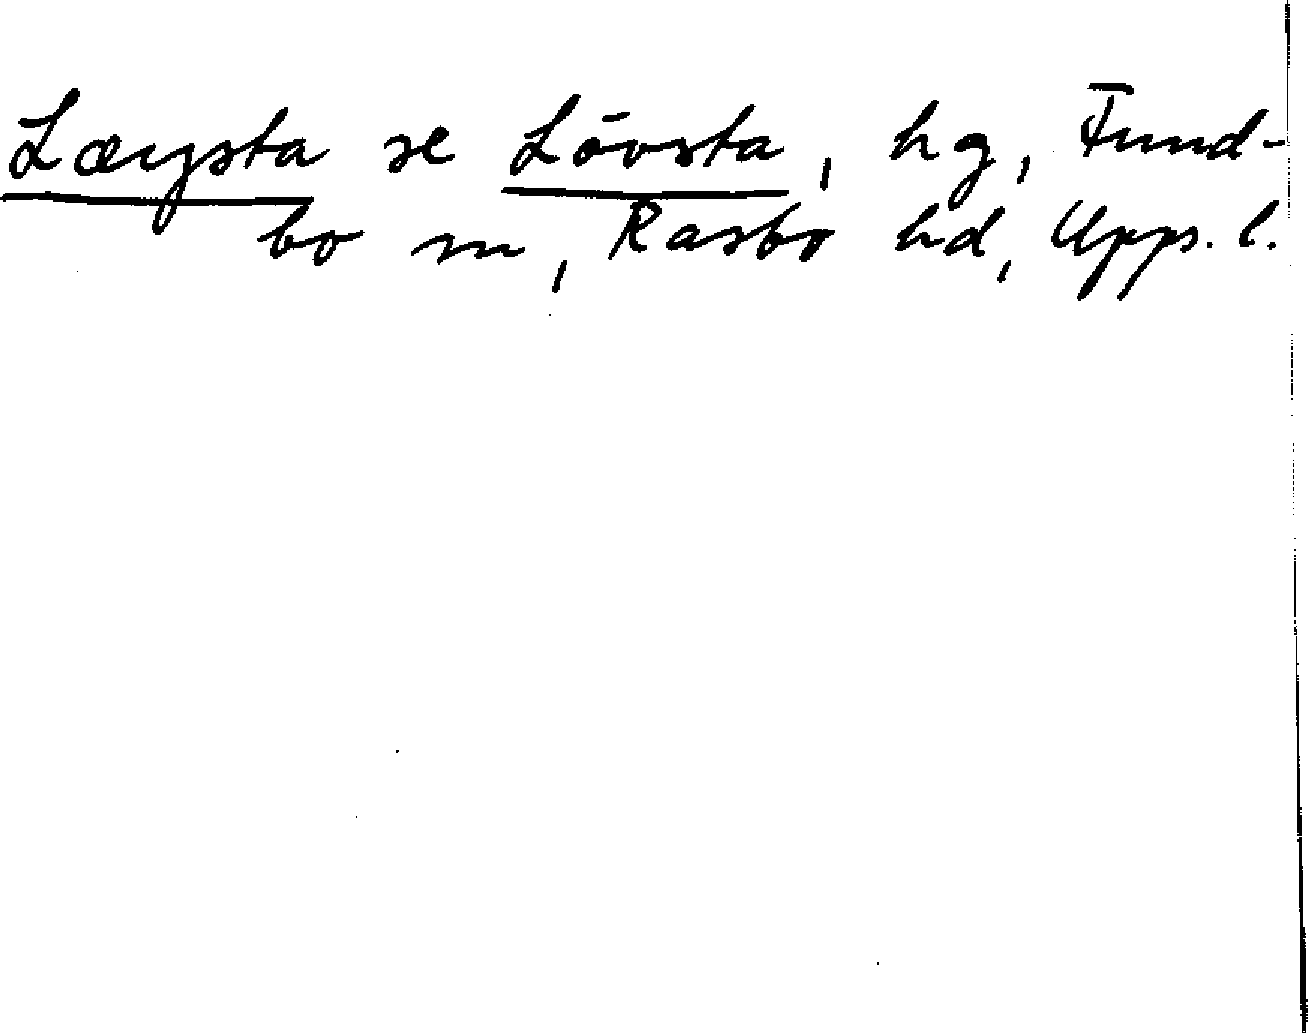 Læysta se Lövsta, hg, Fund-
bo sn, Rasbo hd, Upps. l.